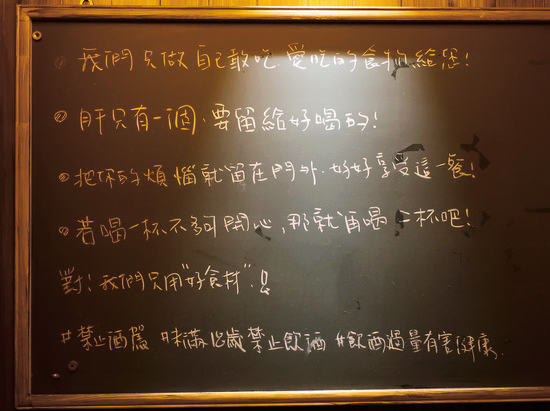 我們只做自己敢吃、愛吃的食物給您!
肝只有一個,要留給好喝的!
把你的煩惱就留在門外,好好享受這一餐!
若喝一杯不夠開心,那就再喝二杯吧!
對!我們只用"好食材"!
#禁止酒駕 #未滿18歲禁止飲酒 #飲酒過量有害健康